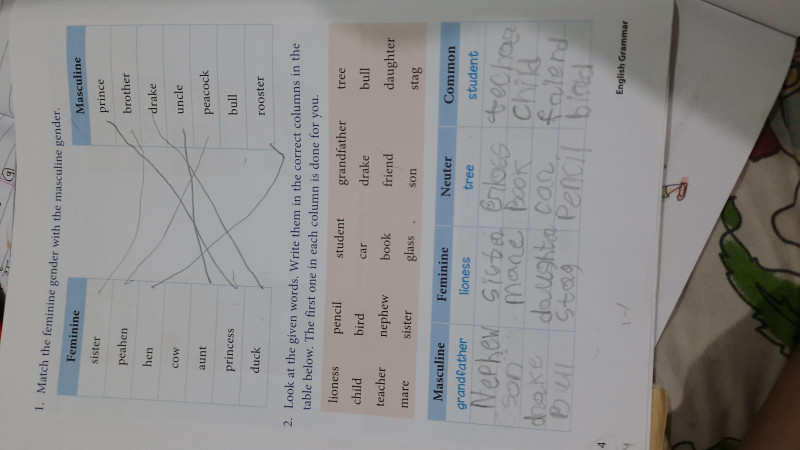 1. Match the feminine gender with the masculine gender.
Feminine Masculine
sister prince
peahen brother
hen drake
cow uncle
aunt peacock
princess bull
duck rooster
2. Look at the given words. Write them in the correct columns in the
table below. The first one in each column is done for you.
lioness pencil student grandfather tree
child bird car drake bull
teacher nephew book friend daughter
mare sister glass son stag
Masculine Feminine Neuter Common
grandfather lioness tree student
Nephew sista Glass
son mare Book child
drake daughta car
Bull stag Pencil bird
4
English Grammar